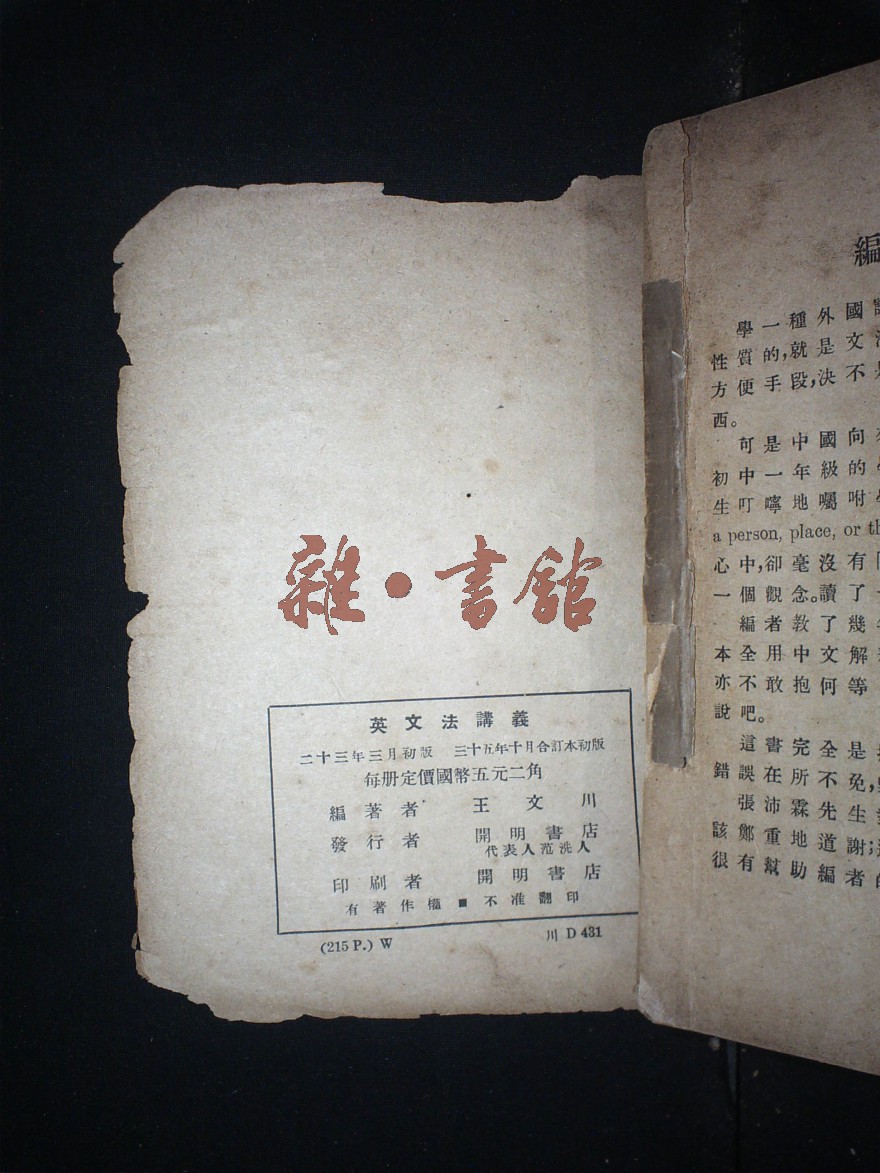 雜·書舘
英文法講義
二十三年三月初版 三十五年十月合訂本初版
每册定價國幣五元二角
編著者 王文川
發行者 開明書店
代表人范洗人
印刷者 開明書店
有著作權■不准翻印
(215 P.) W 川 D 431
編
學一種外國
性質的,就是文
方便手段,決不
西。
可是中國向
初中一年級的
生叮嚀地囑咐
a person, place, or
心中,卻毫沒有
一個觀念。讀了
編者教了幾
本全用中文解
亦不敢抱何等
說吧。
這書完全是
錯誤在所不免,
張沛霖先生
該鄭重地道謝;
很有幫助編者